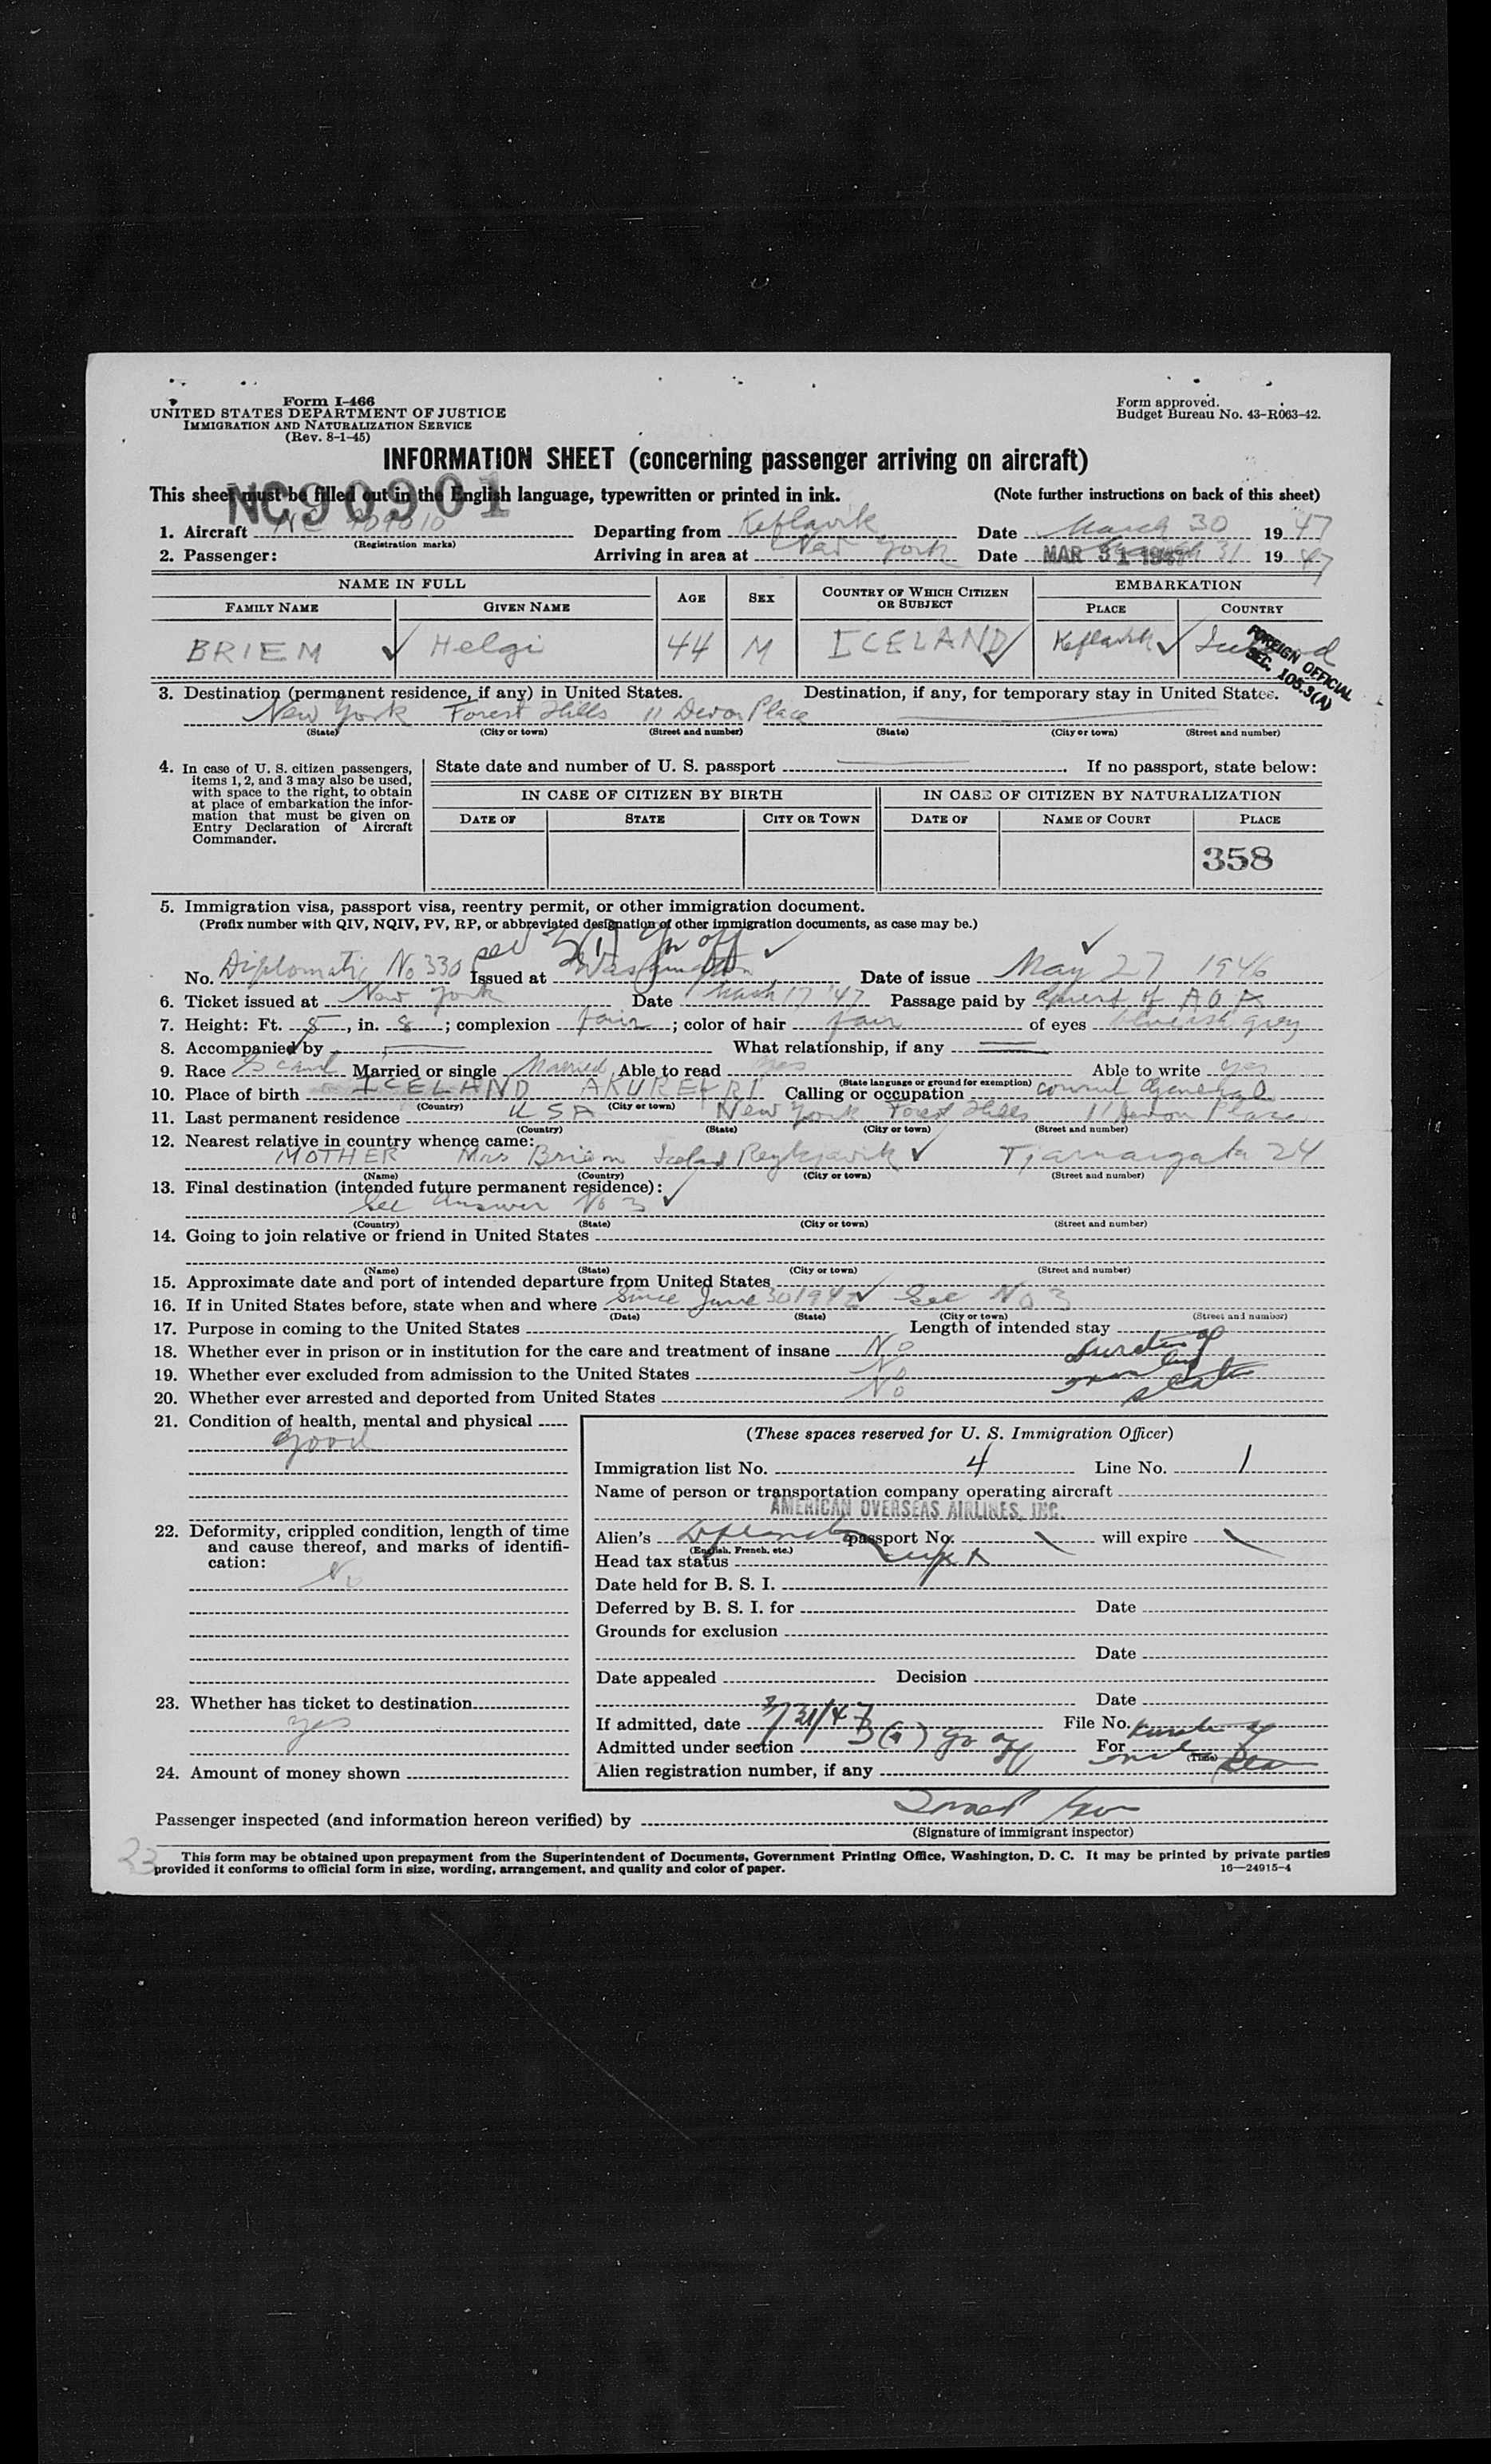 Form I-466
UNITED STATES DEPARTMENT OF JUSTICE
IMMIGRATION AND NATURALIZATION SERVICE
(Rev. 8-1-45)
Form approved.
Budget Bureau No. 43-R063-42.
INFORMATION SHEET (concerning passenger arriving on aircraft)
This sheet must be filled out in the English language, typewritten or printed in ink. (Note further instructions on back of this sheet)
NC90901
1. Aircraft NC Departing from Keflavik Date March 30 1947
(Registration marks)
2. Passenger: Arriving in area at New York Date MAR 31 1947 March 31 1947
NAME IN FULL AGE SEX COUNTRY OF WHICH CITIZEN OR SUBJECT EMBARKATION
FAMILY NAME GIVEN NAME PLACE COUNTRY
BRIEM Helgi 44 M ICELAND Keflavik Iceland
FOREIGN OFFICIAL
SEC. 105.3(A)
3. Destination (permanent residence, if any) in United States. Destination, if any, for temporary stay in United States.
New York Forest Hills 11 Devon Place
(State) (City or town) (Street and number) (State) (City or town) (Street and number)
4. In case of U. S. citizen passengers, items 1, 2, and 3 may also be used, with space to the right, to obtain at place of embarkation the information that must be given on Entry Declaration of Aircraft Commander.
State date and number of U. S. passport If no passport, state below:
IN CASE OF CITIZEN BY BIRTH IN CASE OF CITIZEN BY NATURALIZATION
DATE OF STATE CITY OR TOWN DATE OF NAME OF COURT PLACE
358
5. Immigration visa, passport visa, reentry permit, or other immigration document.
(Prefix number with QIV, NQIV, PV, RP, or abbreviated designation of other immigration documents, as case may be.)
No. Diplomatic No 330 Issued at Washington Date of issue May 27 1946
6. Ticket issued at New York Date March 17 '47 Passage paid by Guest of AOA
7. Height: Ft. 5, in. 8; complexion fair; color of hair fair of eyes blueish grey
8. Accompanied by What relationship, if any
9. Race Scand Married or single Married Able to read yes Able to write yes
(State language or ground for exemption)
10. Place of birth ICELAND AKUREYRI Calling or occupation consul General
(Country) (City or town)
11. Last permanent residence USA New York Forest Hills 11 Devon Place
(Country) (State) (City or town) (Street and number)
12. Nearest relative in country whence came:
MOTHER Mrs Briem Iceland Reykjavik Tjarnargata 24
(Name) (Country) (City or town) (Street and number)
13. Final destination (intended future permanent residence):
See Answer No 3
(Country) (State) (City or town) (Street and number)
14. Going to join relative or friend in United States
(Name) (State) (City or town) (Street and number)
15. Approximate date and port of intended departure from United States
16. If in United States before, state when and where Since June 30 1942 See No 3
(Date) (State) (City or town) (Street and number)
17. Purpose in coming to the United States Length of intended stay
18. Whether ever in prison or in institution for the care and treatment of insane No
19. Whether ever excluded from admission to the United States No
20. Whether ever arrested and deported from United States No
21. Condition of health, mental and physical
good
22. Deformity, crippled condition, length of time and cause thereof, and marks of identification:
No
23. Whether has ticket to destination
yes
24. Amount of money shown
(These spaces reserved for U. S. Immigration Officer)
Immigration list No. 4 Line No. 1
Name of person or transportation company operating aircraft
AMERICAN OVERSEAS AIRLINES, INC.
Alien's passport No. will expire
(English, French, etc.)
Head tax status
Date held for B. S. I.
Deferred by B. S. I. for Date
Grounds for exclusion
Date
Date appealed Decision
Date
If admitted, date 3/31/47 File No.
Admitted under section 3(1) For
(Time)
Alien registration number, if any
Passenger inspected (and information hereon verified) by
(Signature of immigrant inspector)
This form may be obtained upon prepayment from the Superintendent of Documents, Government Printing Office, Washington, D. C. It may be printed by private parties
provided it conforms to official form in size, wording, arrangement, and quality and color of paper. 16—24915-4